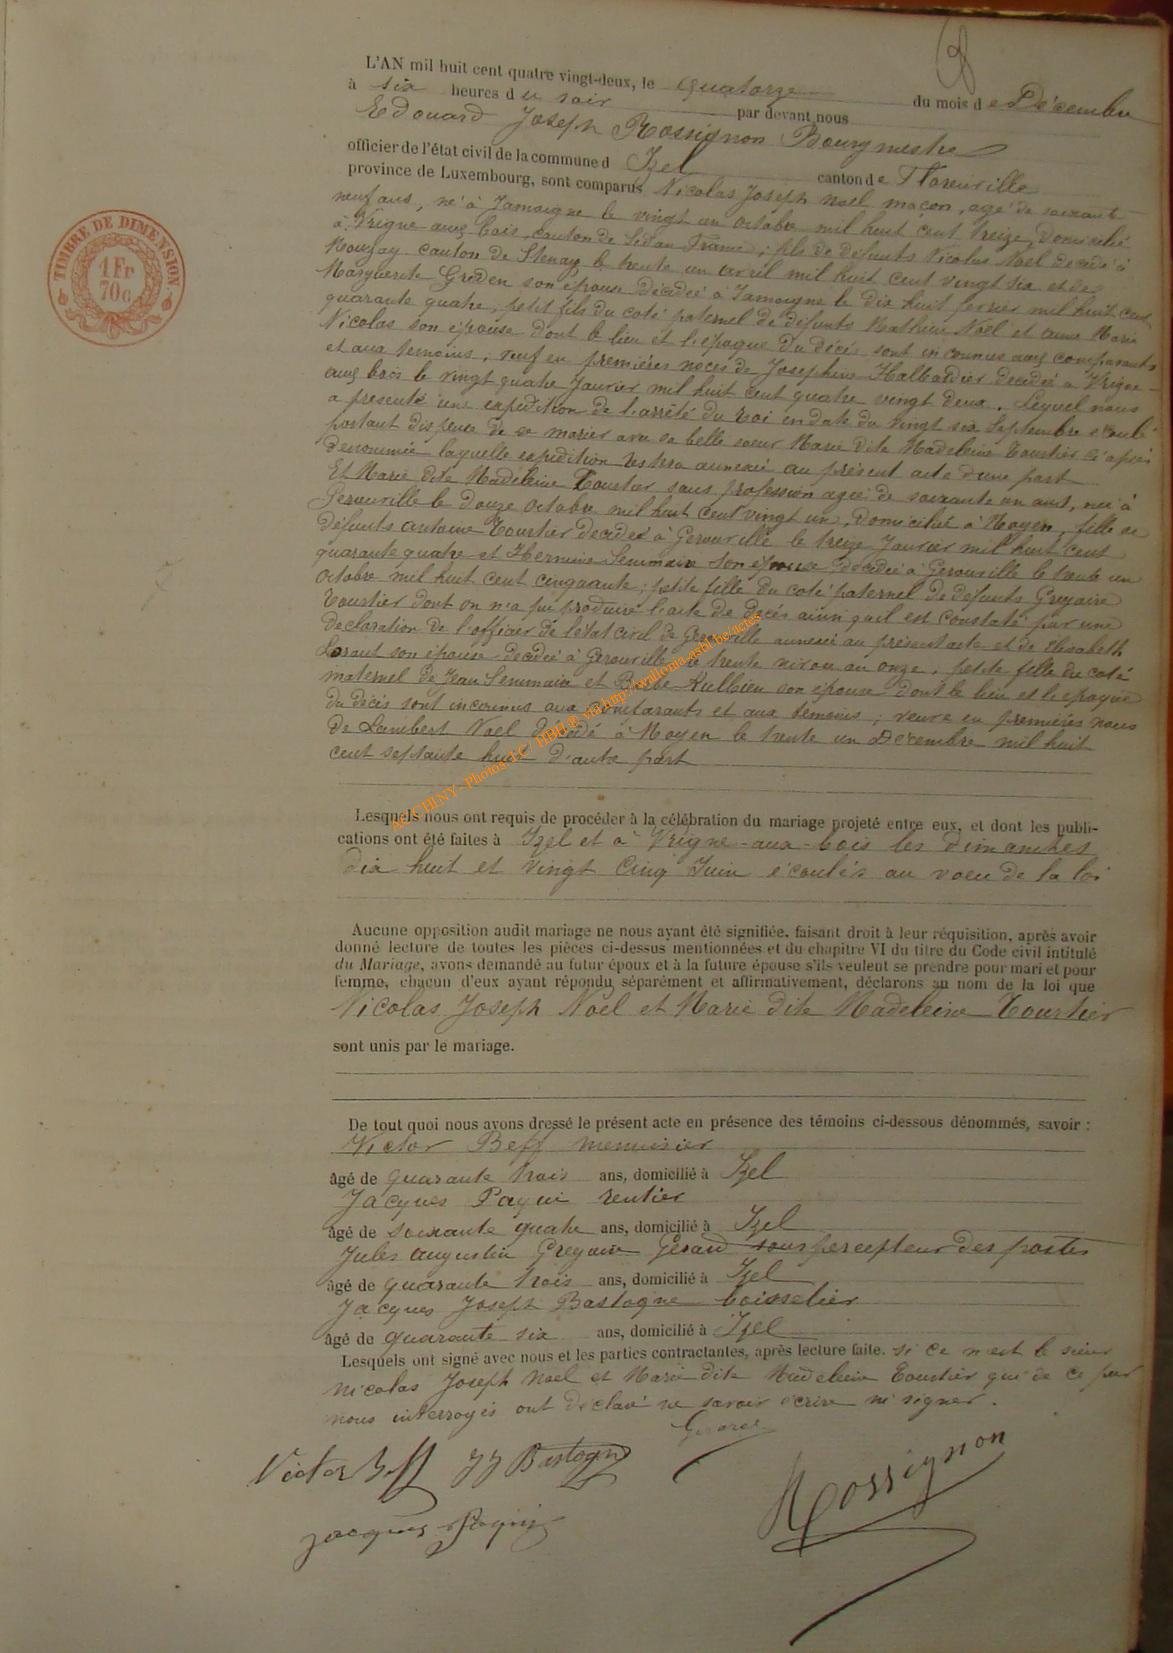 L'AN mil huit cent quatre vingt-deux, le quatorze du mois de Décembre
à six heures du soir par devant nous
Edouard Joseph Rossignon Bourgmestre
officier de l'état civil de la commune d Izel canton de Florenville
province de Luxembourg, sont comparus Nicolas Joseph Noel maçon, agé de soixante
neuf ans, né à Jamoigne le vingt un octobre mil huit cent treize, domicilié
à Vrigne aux bois canton de Sédan France ; fils de défunts Nicolas Noel décédé à
Mouzay canton de Stenay le trente un avril mil huit cent vingt six et de
Marguerite Groden son épouse décédée à Jamoigne le dix huit fevrier mil huit cent
quarante quatre, petit fils du coté paternel de défunts Mathieu Noel et anne Marie
Nicolas son épouse dont le lieu et l'époque du décés sont inconnus aux comparants
et aux temoins, veuf en premières noces de Josephine Halbardier décédée à Vrigne
aux bois le vingt quatre Janvier mil huit cent quatre vingt deux. Lequel nous
a présenté une expédition de l'arrêté du roi en date du vingt six Septembre écoulé
portant dispense de se marier avec sa belle soeur Marie dite Madeleine Tourtier ci après
denommée laquelle expédition restera annexée au présent acte d'une part
Et Marie dite Madeleine Tourtier sans profession agée de soixante un ans, née à
Gerouville le douze octobre mil huit cent vingt un, domiciliée à Moyen, fille de
défunts antoine Tourtier décédé à Gerouville le treize Janvier mil huit cent
quarante quatre et Hermine son épouse décédée à Gerouville le trente un
octobre mil huit cent cinquante ; petite fille du coté paternel de défunts Gregoire
Tourtier dont on n'a pu produire l'acte de décés ainsi qu'il est constaté par une
déclaration de l'officier de l'état civil de Gerouville annexée au présent acte et de Elisabeth
son épouse décédée à Gerouville le trente nivose an onze, petite fille du coté
maternel de Jean et Barbe son épouse dont le lieu et l'epoque
du décés sont inconnus aux comparants et aux temoins ; veuve en premières noces
de Lambert Noel décédé à Moyen le trente un Décembre mil huit
cent septante huit d'autre part
Ac CHINY - Photos J.C. HBH @ via http://wallonia.asbl.be/actes
Lesquels nous ont requis de procéder à la célébration du mariage projeté entre eux, et dont les publi-
cations ont été faites à Izel et à Vrigne-aux-bois les dimanches
dix huit et vingt cinq Juin écoulés au voeu de la loi
Aucune opposition audit mariage ne nous ayant été signifiée, faisant droit à leur réquisition, après avoir
donné lecture de toutes les pièces ci-dessus mentionnées et du chapitre VI du titre du Code civil intitulé
du Mariage, avons demandé au futur époux et à la future épouse s'ils veulent se prendre pour mari et pour
femme, chacun d'eux ayant répondu séparément et affirmativement, déclarons au nom de la loi que
Nicolas Joseph Noel et Marie dite Madeleine Tourtier
sont unis par le mariage.
De tout quoi nous avons dressé le présent acte en présence des témoins ci-dessous dénommés, savoir :
Victor Beff menuisier
âgé de quarante trois ans, domicilié à Izel
Jacques Payui rentier
âgé de soixante quatre ans, domicilié à Izel
Jules augustin Gregoire Gérard sous percepteur des postes
âgé de quarante trois ans, domicilié à Izel
Jacques Joseph Bastogne boisselier
âgé de quarante six ans, domicilié à Izel
Lesquels ont signé avec nous et les parties contractantes, après lecture faite. si ce n'est le sieur
Nicolas Joseph Noel et Marie dite Madeleine Tourtier qui de ce par
nous interrogés ont déclaré ne savoir écrire ni signer.
Gerard
Victor Beff JJ Bastogne
Rossignon
Jacques
TIMBRE DE DIMENSION
1 Fr
70 c